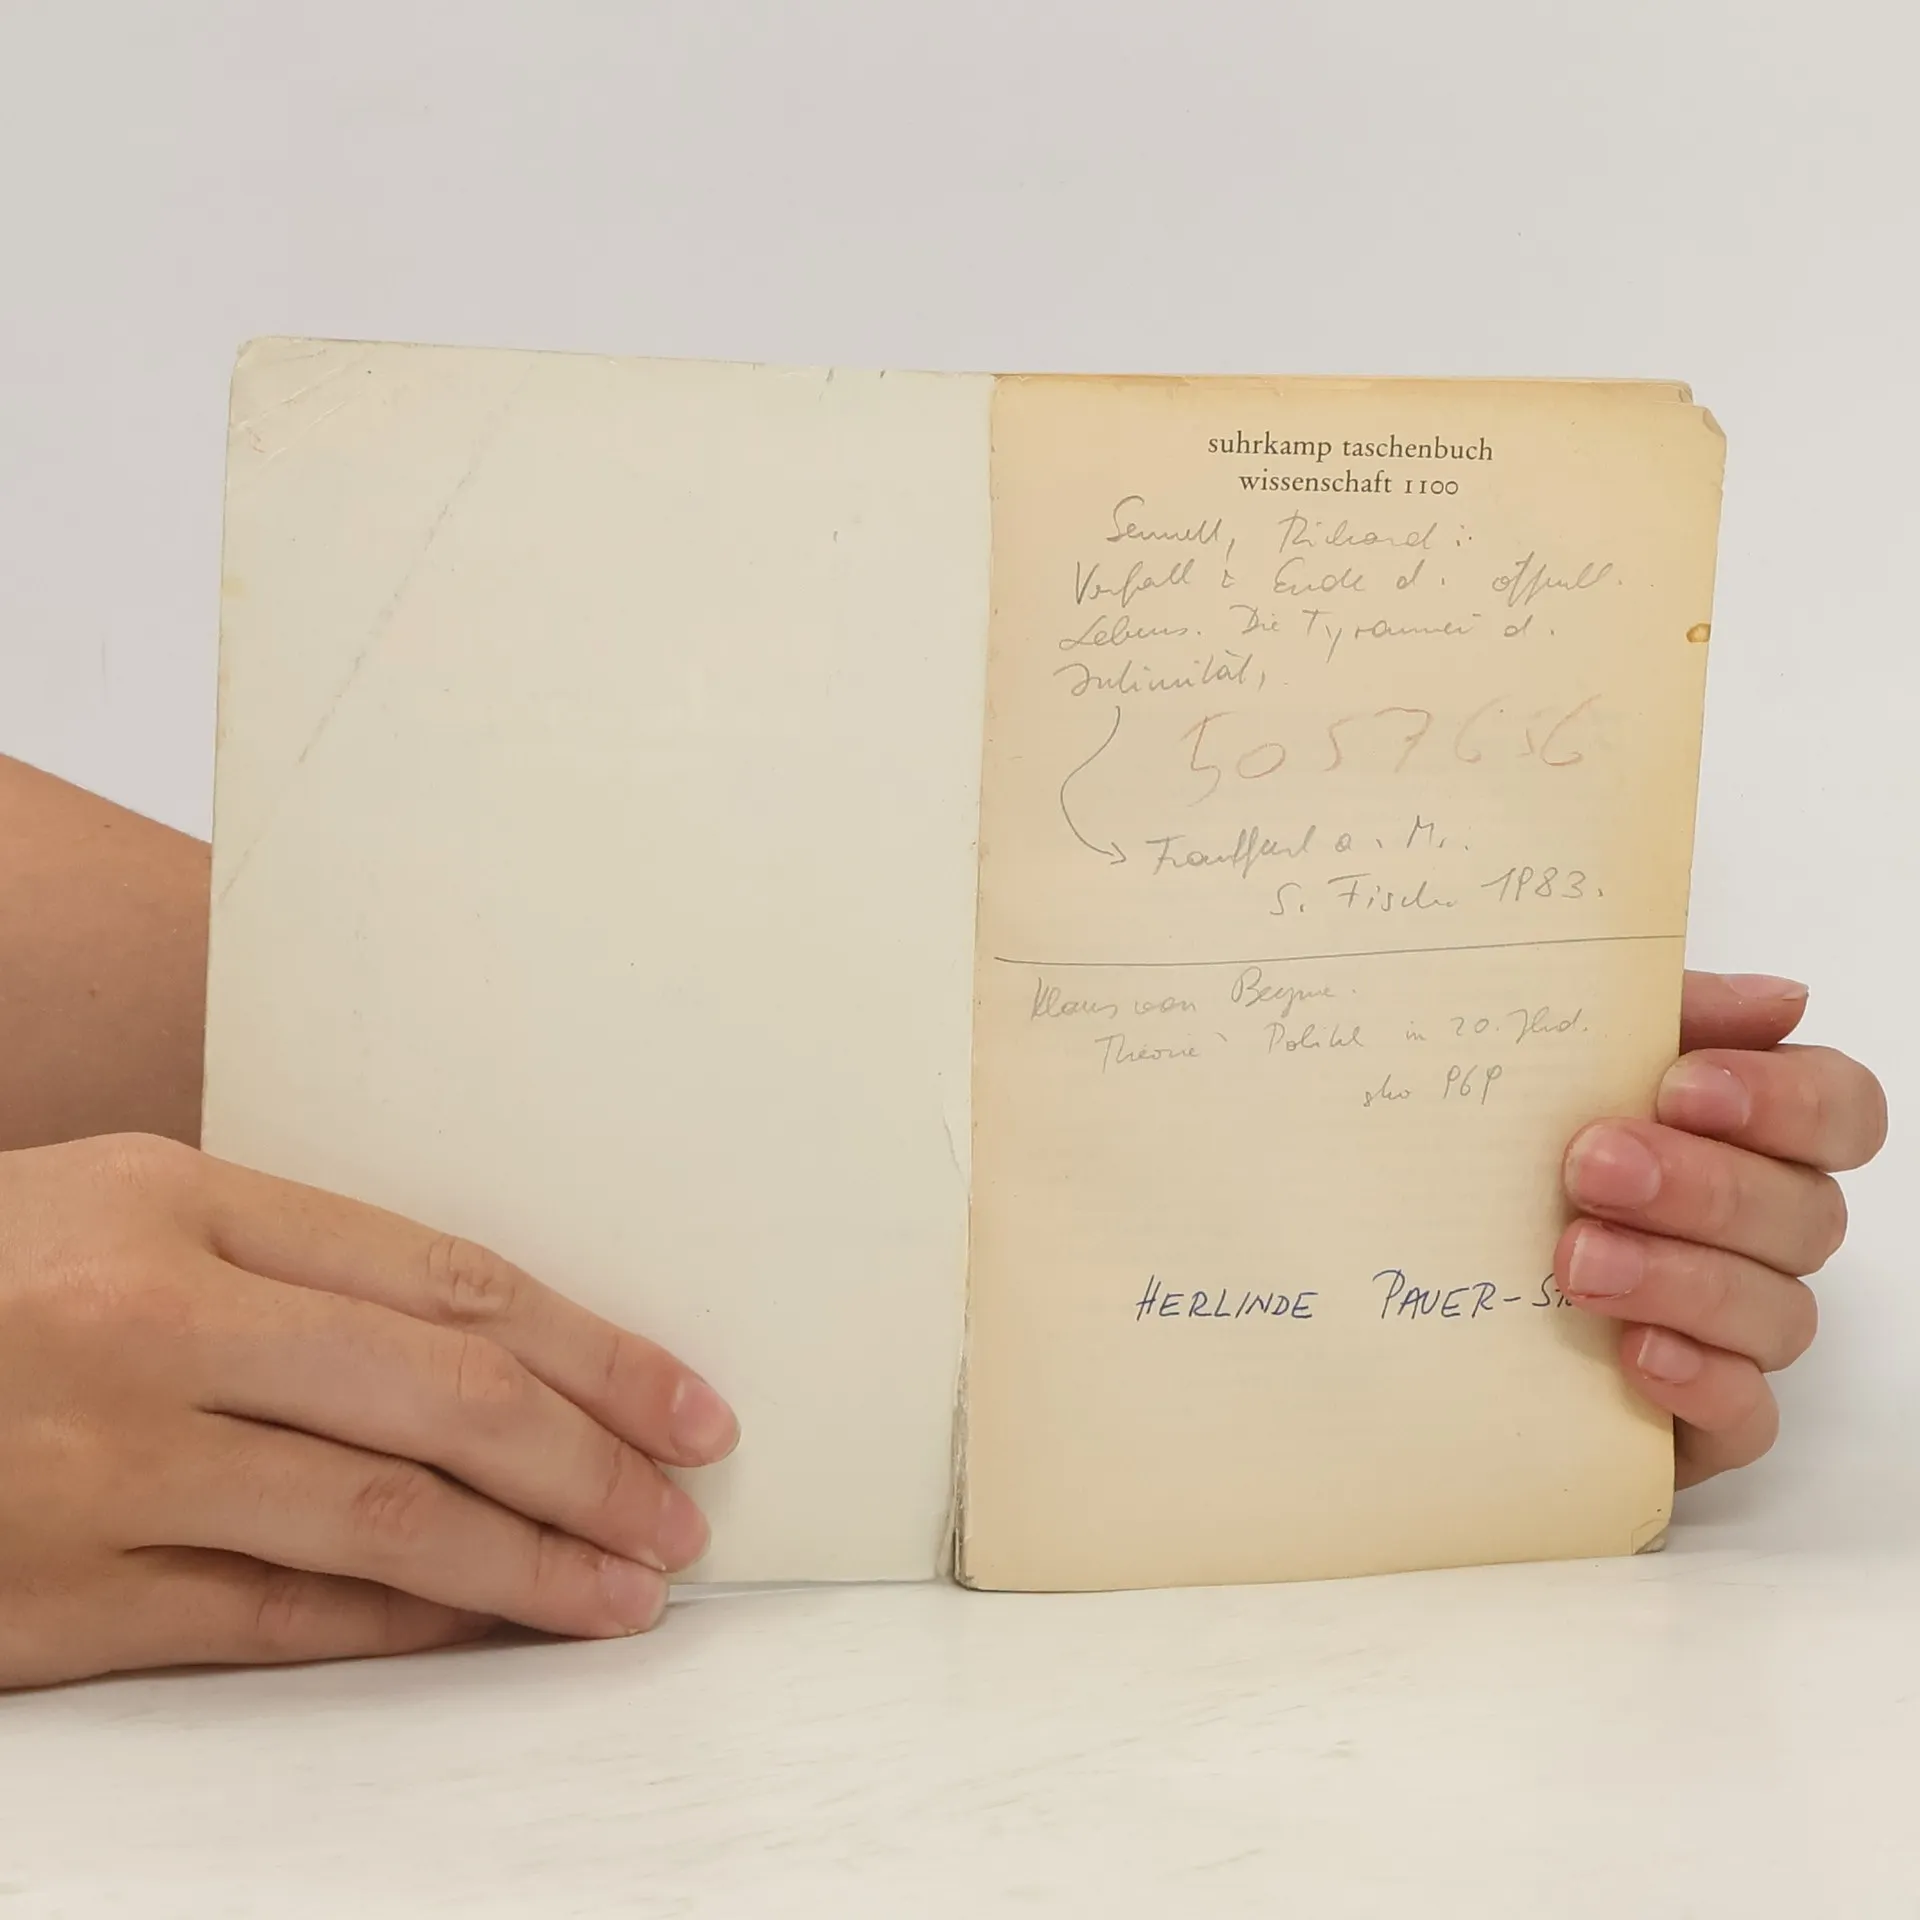 suhrkamp taschenbuch
wissenschaft 1100
Sennett, Richard:
Verfall & Ende d. öffentl.
Lebens. Die Tyrannei d.
Intimität,
5057656
Frankfurt a. M.:
S. Fischer 1983.
Klaus von Beyme.
Theorie Politik in 20. Jhd.
969
HERLINDE PAUER-